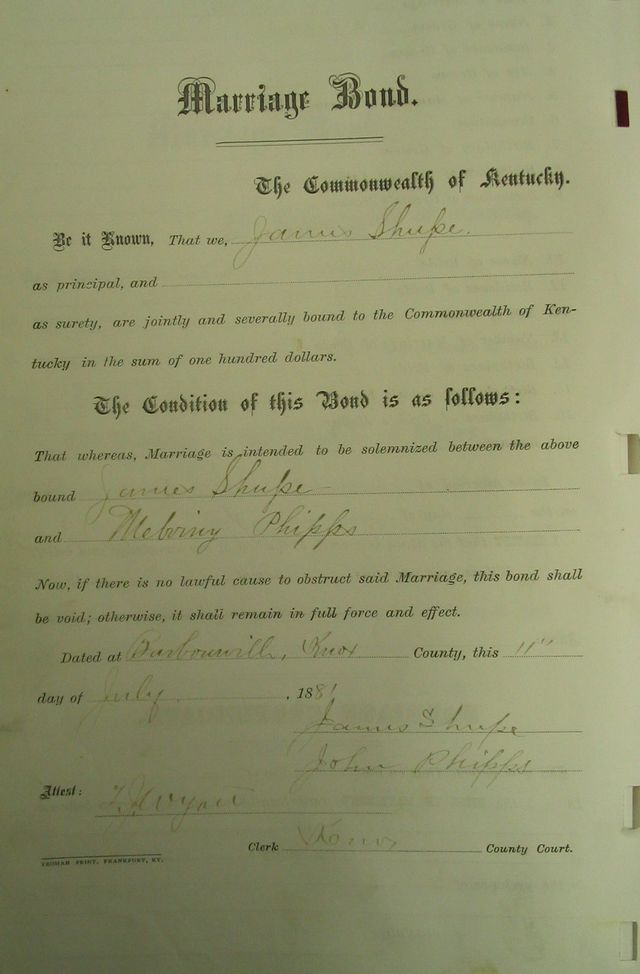 Marriage Bond.
The Commonwealth of Kentucky.
Be it Known, That we, James Shupe.
as principal, and
as surety, are jointly and severally bound to the Commonwealth of Ken-
tucky in the sum of one hundred dollars.
The Condition of this Bond is as follows:
That whereas, Marriage is intended to be solemnized between the above
bound James Shupe
and Melviny Phipps
Now, if there is no lawful cause to obstruct said Marriage, this bond shall
be void; otherwise, it shall remain in full force and effect.
Dated at Barbourvill, Knox County, this 11"
day of July, 1881
James Shupe
John Phipps
Attest:
Clerk Knox County Court.
YEOMAN PRINT, FRANKFORT, KY.